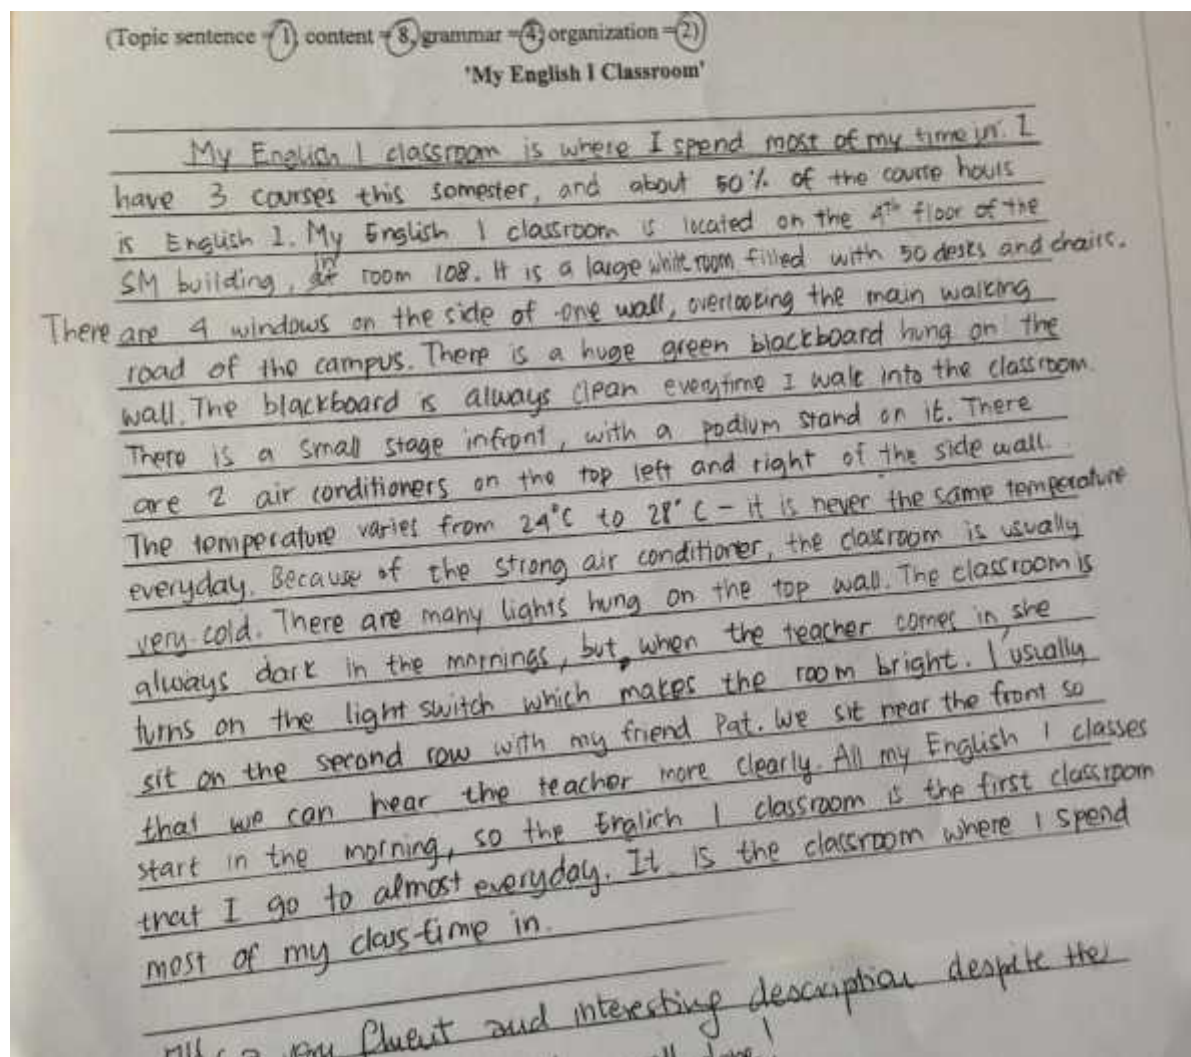 (Topic sentence = 1, content = 8, grammar = 4, organization = 2)
'My English I Classroom'
My English 1 classroom is where I spend most of my time in. I
have 3 courses this somester, and about 50% of the course hours
is English 1. My English 1 classroom is located on the 4th floor of the
SM building, in room 108. It is a large white room filled with 50 desks and chairs.
There are 4 windows on the side of one wall, overlooking the main walking
road of the campus. There is a huge green blackboard hung on the
wall. The blackboard is always clean everytime I walk into the classroom.
There is a small stage infront, with a podium stand on it. There
are 2 air conditioners on the top left and right of the side wall.
The temperature varies from 24°C to 28°C - it is never the same temperature
everyday. Because of the strong air conditioner, the classroom is usually
very cold. There are many lights hung on the top wall. The classroom is
always dark in the mornings, but when the teacher comes in, she
turns on the light switch which makes the room bright. I usually
sit on the second row with my friend Pat. We sit near the front so
that we can hear the teacher more clearly. All my English 1 classes
start in the morning, so the English 1 classroom is the first classroom
that I go to almost everyday. It is the classroom where I spend
most of my class-time in.
fluent and interesting description despite the